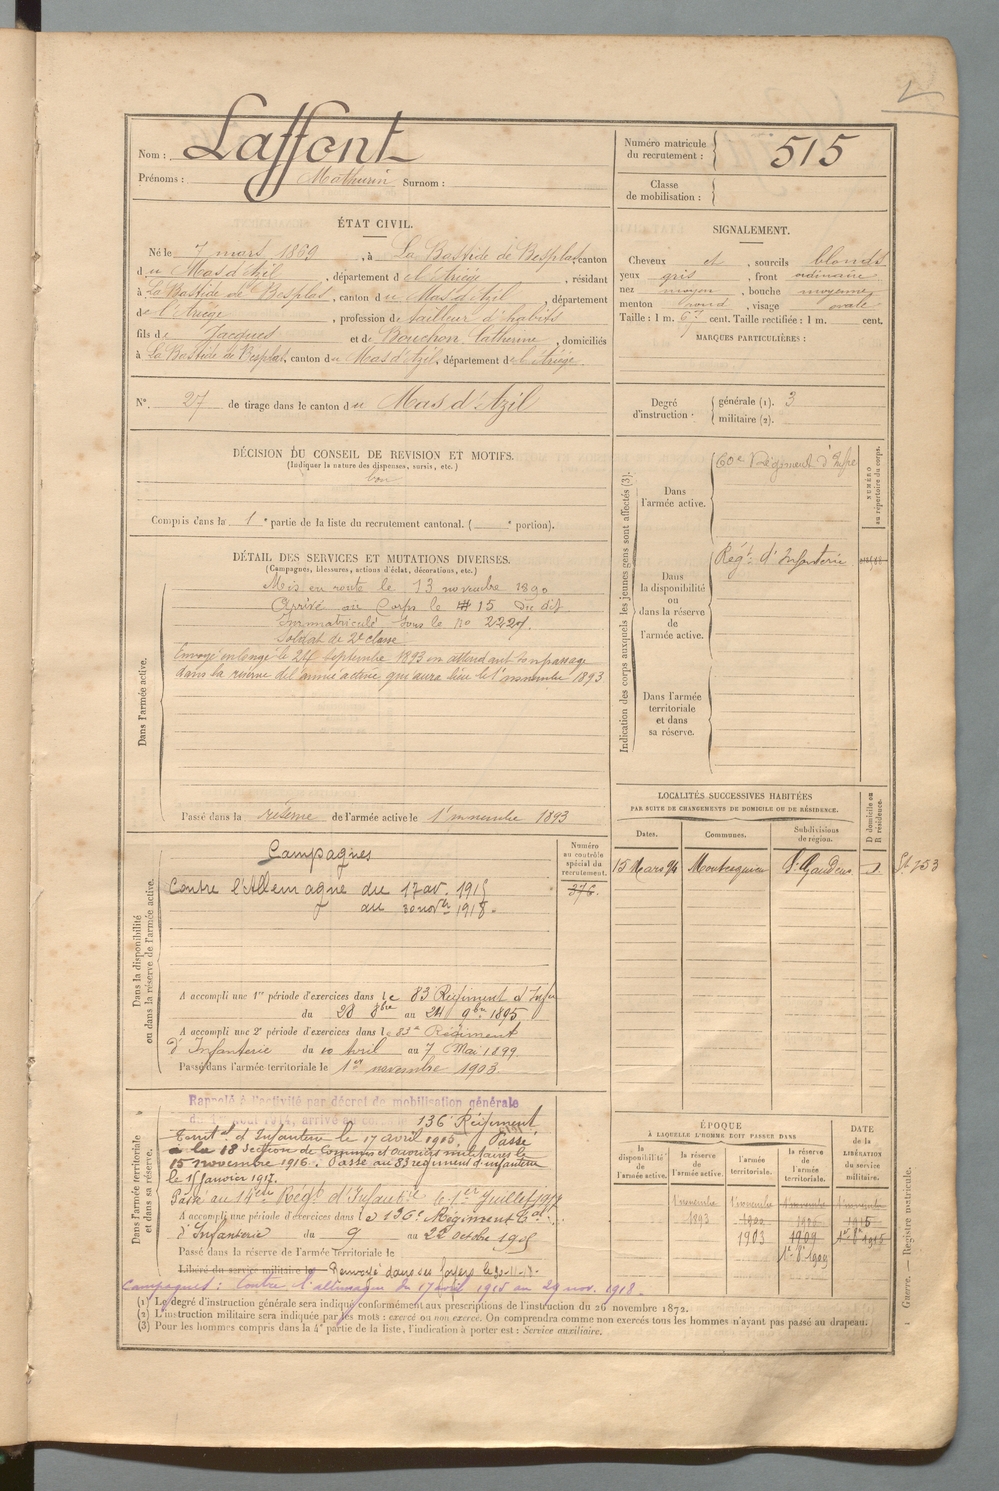 Nom : Laffont
Prénoms : Mathurin Surnom :
Numéro matricule du recrutement : 515
Classe de mobilisation :
ÉTAT CIVIL.
Né le 7 mars 1869, à La Bastide de Besplas, canton
du Mas d'Azil, département de l'Ariège, résidant
à La Bastide de Besplas, canton du Mas d'Azil, département
de l'Ariège, profession de tailleur d'habits
fils de Jacques et de Bouchon Catherine, domiciliés
à La Bastide de Besplas, canton du Mas d'Azil, département de l'Ariège.
SIGNALEMENT.
Cheveux et, sourcils blonds
yeux gris, front ordinaire
nez moyen, bouche moyenne
menton rond, visage ovale
Taille : 1 m. cent. Taille rectifiée : 1 m. cent.
MARQUES PARTICULIÈRES :
N°. 27 de tirage dans le canton du Mas d'Azil
Degré d'instruction :
générale (1). 3
militaire (2).
DÉCISION DU CONSEIL DE REVISION ET MOTIFS.
(Indiquer la nature des dispenses, sursis, etc.)
bon
Compris dans la 1e partie de la liste du recrutement cantonal. ( e portion).
DÉTAIL DES SERVICES ET MUTATIONS DIVERSES.
(Campagnes, blessures, actions d'éclat, décorations, etc.)
Dans l'armée active.
Mis en route le 13 novembre 1890
Arrivé au Corps le 15 du dit
Immatriculé sous le no 2227.
Soldat de 2e classe
Envoyé en congé le 24 septembre 1893 en attendant son passage
dans la réserve de l'armée active, qui aura lieu le 1er novembre 1893
Passé dans la réserve de l'armée active le 1er novembre 1893
Indication des corps auxquels les jeunes gens sont affectés (3).
NUMÉRO au répertoire du corps.
Dans l'armée active.
60e Régiment d'Infie
Dans la disponibilité ou dans la réserve de l'armée active.
Régt d'Infanterie
Dans l'armée territoriale et dans sa réserve.
LOCALITÉS SUCCESSIVES HABITÉES
PAR SUITE DE CHANGEMENTS DE DOMICILE OU DE RÉSIDENCE.
Dates. Communes. Subdivisions de région. D domicile ou R résidence.
15 Mars 94 Montesquieu St Gaudens
Dans la disponibilité ou dans la réserve de l'armée active.
Numéro au contrôle spécial du recrutement.
376.
Campagnes
Contre l'Allemagne du 17 av. 1915
au 30 novbre 1918.
A accompli une 1re période d'exercices dans le 83 Régiment d'Infie
du 28 8bre au 24 9bre 1895
A accompli une 2e période d'exercices dans le 83e Régiment
d'Infanterie du 10 Avril au 7 Mai 1899.
Passé dans l'armée territoriale le 1er novembre 1903.
Dans l'armée territoriale et dans sa réserve.
Rappelé à l'activité par décret de mobilisation générale
du 1er Août 1914, arrivé au 136 Régiment
Territ. d'Infanterie le 17 avril 1915. Passé
à la 18 Section de Commis et Ouvriers militaires le
15 novembre 1916. Passé au 83 régiment d'infanterie
le 15 Janvier 1917.
Passé au 14e Régt d'Infanterie le 1er Juillet 1917
A accompli une période d'exercices dans le 136e Régiment Tal
d'Infanterie du 9 au 22 octobre 1905
Passé dans la réserve de l'Armée Territoriale le
Libéré du service militaire le Renvoyé dans ses foyers le
Campagnes : Contre l'Allemagne du 17 avril 1915 au 29 nov. 1918.
ÉPOQUE
À LAQUELLE L'HOMME DOIT PASSER DANS
la disponibilité de l'armée active.
la réserve de l'armée active.
l'armée territoriale.
la réserve de l'armée territoriale.
DATE de la LIBÉRATION du service militaire.
1 novembre 1 novembre 1 novembre 1 novembre
1893 1902 1915
1903 1909
(1) Le degré d'instruction générale sera indiqué conformément aux prescriptions de l'instruction du 26 novembre 1872.
(2) L'instruction militaire sera indiquée par les mots : exercé ou non exercé. On comprendra comme non exercés tous les hommes n'ayant pas passé au drapeau.
(3) Pour les hommes compris dans la 4e partie de la liste, l'indication à porter est : Service auxiliaire.
Guerre. — Registre matricule.